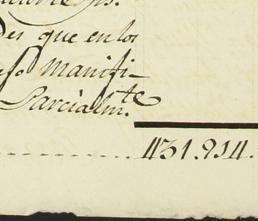 des que en los
manifi-
Parcialm.te
431.914.